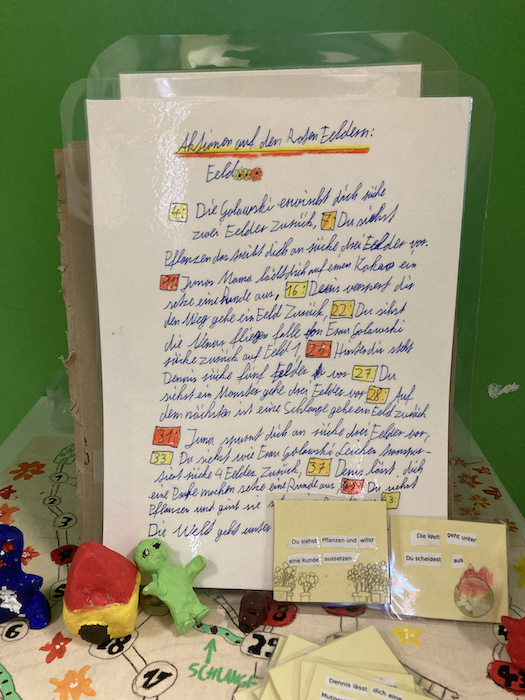 Aktionen auf den Roten Feeldern:
Feeld
4: Die Golawski erwischt dich rücke
zwei Felder zurück, 7: Du siehst
Pflanzen das treibt dich an rücke drei Felder vor.
11: Junos Mama lädt dich auf einen Kakao ein
setze eine Runde aus, 16: Denis versperrt dir
den Weg gehe ein Feeld zurück, 22: Du siehst
die Venus fliegen falle von Esan Golawski
rücke zurück auf Feeld 1, 25: Hinter dir steht
Dennis rücke fünf Felder vor 27: Du
siehst ein Monster gehe drei Felder vor 28: Auf
dem nächsten ist eine Schlange gehe ein Feeld zurück
31: Juno spornt dich an rücke drei Felder vor,
33: Du siehst wie Esan Golawski Leichen transpor-
tiert rücke 4 Felder zurück, 37: Denis lässt dich
eine Pause machen setze eine Runde aus, Du siehst
Pflanzen und
43:
Die Welt geht unter
Du siehst Pflanzen und willst
eine Runde aussetzen
Die Welt geht unter
Du scheidest aus
6
18
17
SCHLANGE
25
Dennis lässt dich eine